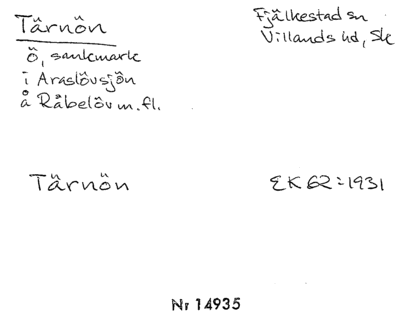 Tärnön
Fjälkestad sn
Villands hd, Sk
ö, sankmark
i Araslövsjön
å Råbelöv m. fl.
Tärnön
EK 62:1931
Nr 14935